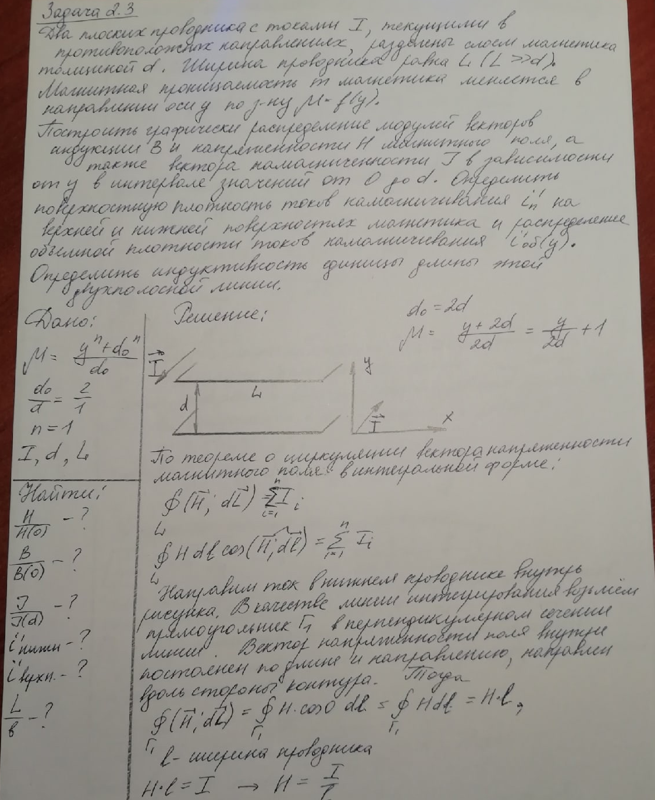 Задача 2.3
Два плоских проводника с токами I, текущими в
противоположных направлениях, разделены слоем магнетика
толщиной d. Ширина проводника равна L (L >> d).
Магнитная проницаемость m магнетика меняется в
направлении оси y по з-ну μ = f(y).
Построить графически распределение модулей векторов
индукции B и напряженности H магнитного поля, а
также вектора намагниченности J в зависимости
от y в интервале значений от 0 до d. Определить
поверхностную плотность токов намагничивания i'п на
верхней и нижней поверхностях магнетика и распределение
объемной плотности токов намагничивания i'об(y).
Определить индуктивность единицы длины этой
двухполосной линии.
Дано:
μ = (y^n + d₀^n)/d₀
d₀/d = 2/1
n = 1
I, d, L
Найти:
H/H(0) - ?
B/B(0) - ?
J/J(d) - ?
i'нижн - ?
i'верхн. - ?
L/в - ?
Решение:
d₀ = 2d
μ = (y + 2d)/2d = y/2d + 1
I
d
L
y
I
x
По теореме о циркуляции вектора напряженности
магнитного поля в интегральной форме:
∮(H⃗; dL⃗) = Σ I i
L
∮ H dl cos(H⃗; dl⃗) = Σ I i
L
Направим ток в нижнем проводнике внутрь
рисунка. В качестве линии интегрирования возьмём
прямоугольник Г₁ в перпендикулярном сечении
линии. Вектор напряженности поля внутри
постоянен по длине и направлению, направлен
вдоль стороны контура. Тогда
∮(H⃗; dL⃗) = ∮ H · cos0 dl = ∮ H dl = H · l,
Г₁ Г₁ Г₁
l - ширина проводника
H·l = I → H = I/l